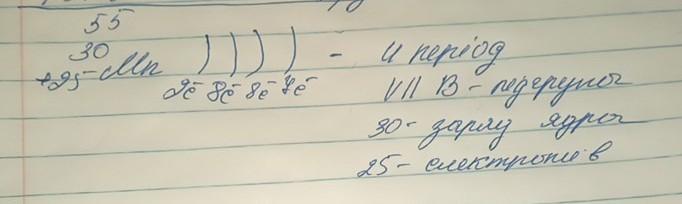 55
30
+25 Mn ) ) ) ) - 4 період
2ē 8ē 8ē 7ē
VII B - підгрупа
30 - заряд ядра
25 - електронів